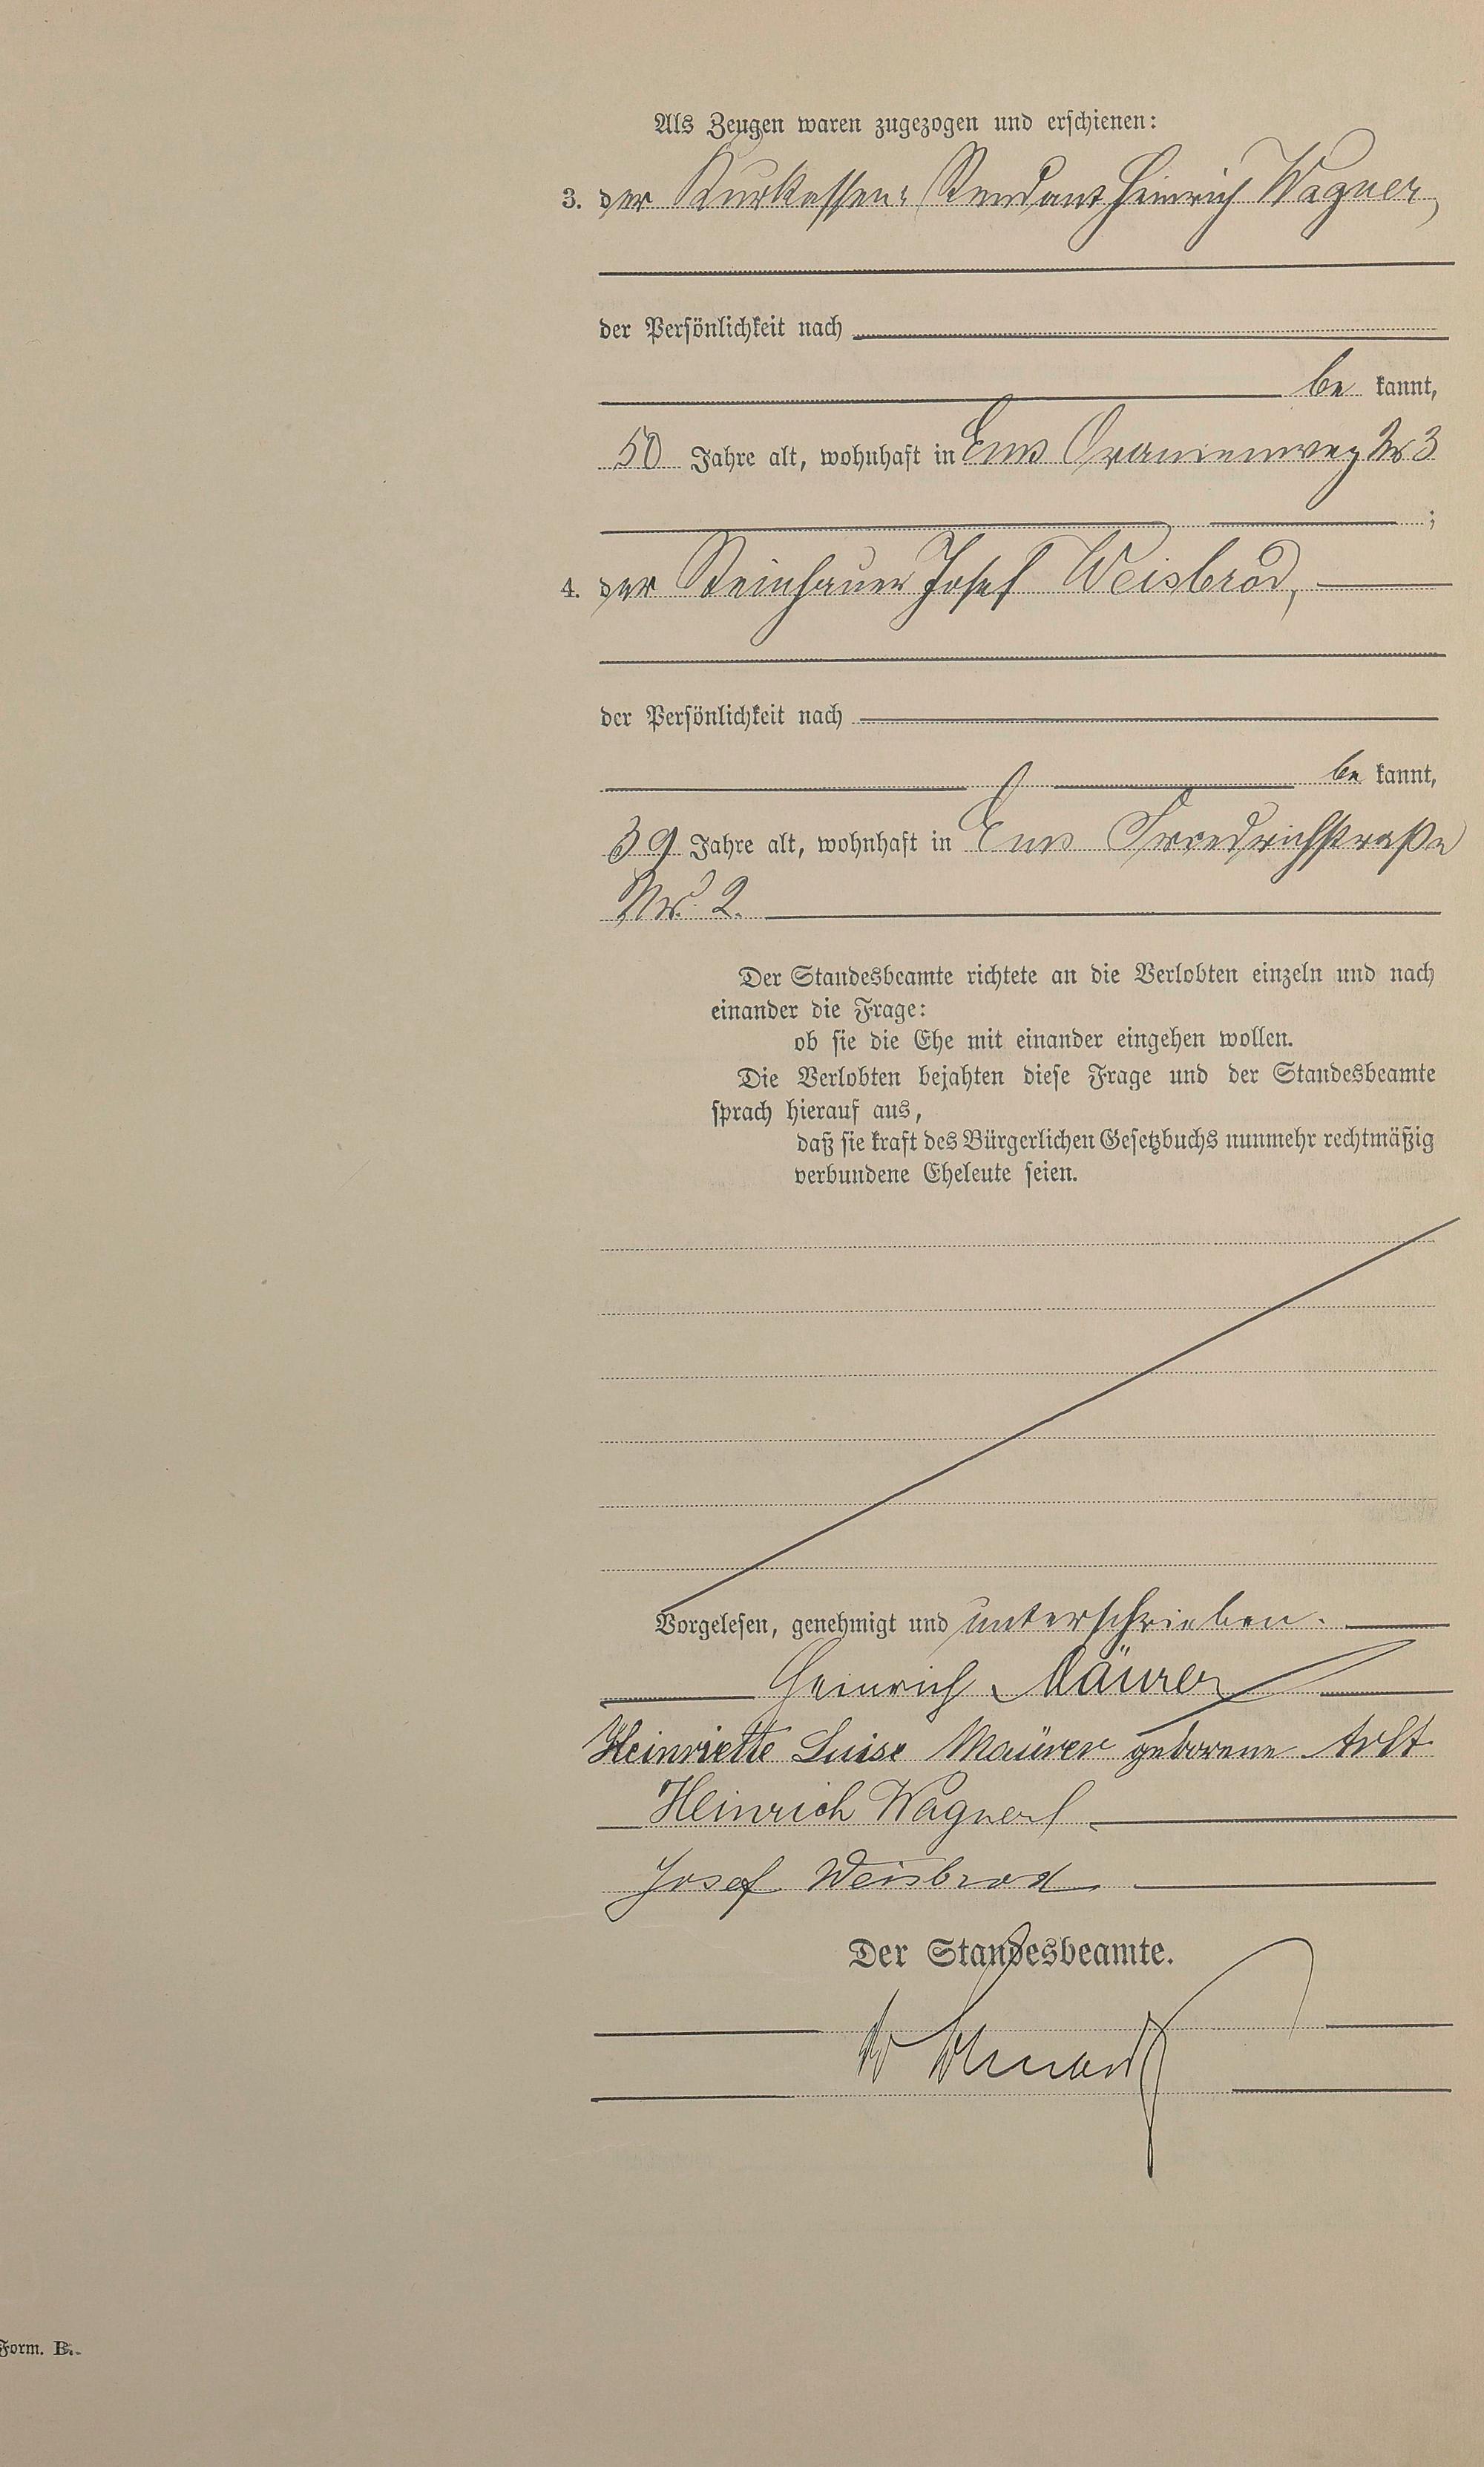 Als Zeugen waren zugezogen und erschienen:
3. der Kurkassen-Rendant Heinrich Wagner,
der Persönlichkeit nach
be kannt,
50 Jahre alt, wohnhaft in Ems Oranienweg Nr 3
;
4. der Steinhauer Josef Weisbrod,
der Persönlichkeit nach
be kannt,
39 Jahre alt, wohnhaft in Ems Friedrichstraße
Nr. 2.
Der Standesbeamte richtete an die Verlobten einzeln und nach
einander die Frage:
ob sie die Ehe mit einander eingehen wollen.
Die Verlobten bejahten diese Frage und der Standesbeamte
sprach hierauf aus,
daß sie kraft des Bürgerlichen Gesetzbuchs nunmehr rechtmäßig
verbundene Eheleute seien.
Vorgelesen, genehmigt und unterschrieben.
Heinrich Mäurer
Heinriette Luise Maürer geborene
Heinrich Wagner
Josef Weisbrod
Der Standesbeamte.
Form. B.